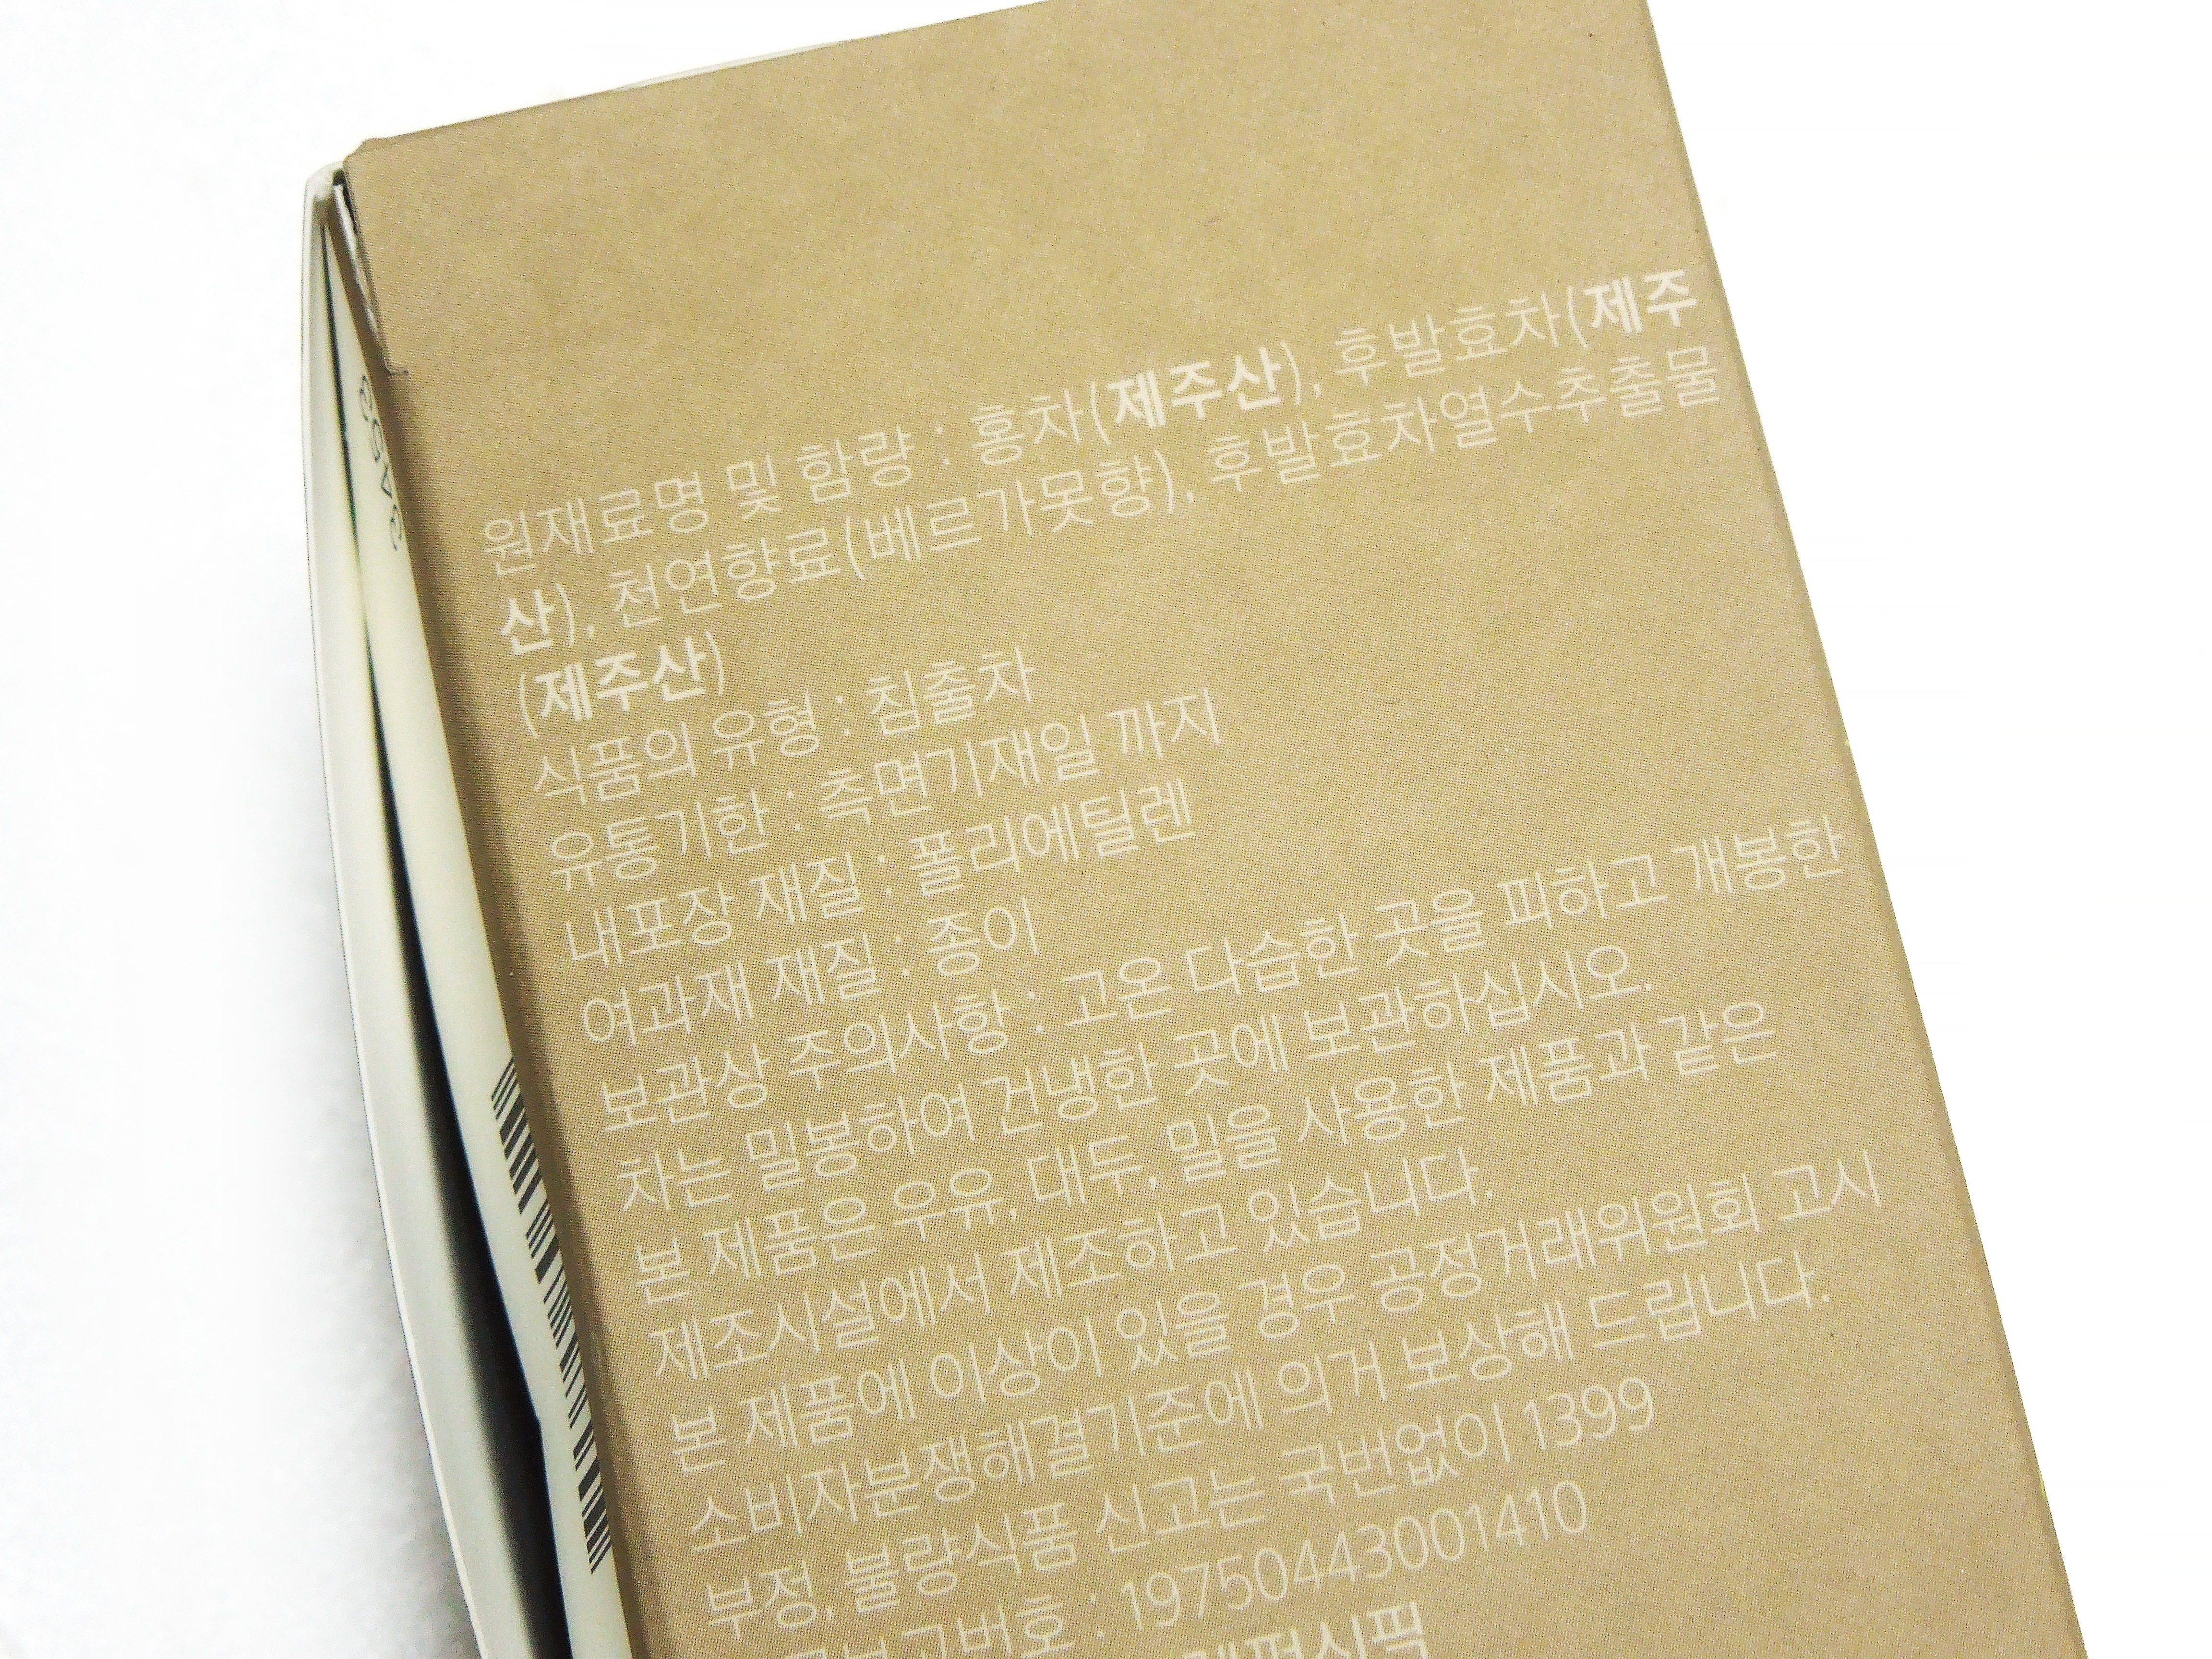 원재료명 및 함량 : 홍차(제주산), 후발효차(제주
산), 천연향료(베르가못향), 후발효차열수추출물
(제주산)
식품의 유형 : 침출차
유통기한 : 측면기재일 까지
내포장 재질 : 폴리에틸렌
여과재 재질 : 종이
보관상 주의사항 : 고온 다습한 곳을 피하고 개봉한
차는 밀봉하여 건냉한 곳에 보관하십시오.
본 제품은 우유, 대두, 밀을 사용한 제품과 같은
제조시설에서 제조하고 있습니다.
본 제품에 이상이 있을 경우 공정거래위원회 고시
소비자분쟁해결기준에 의거 보상해 드립니다.
부정, 불량식품 신고는 국번없이 1399
: 19750443001410